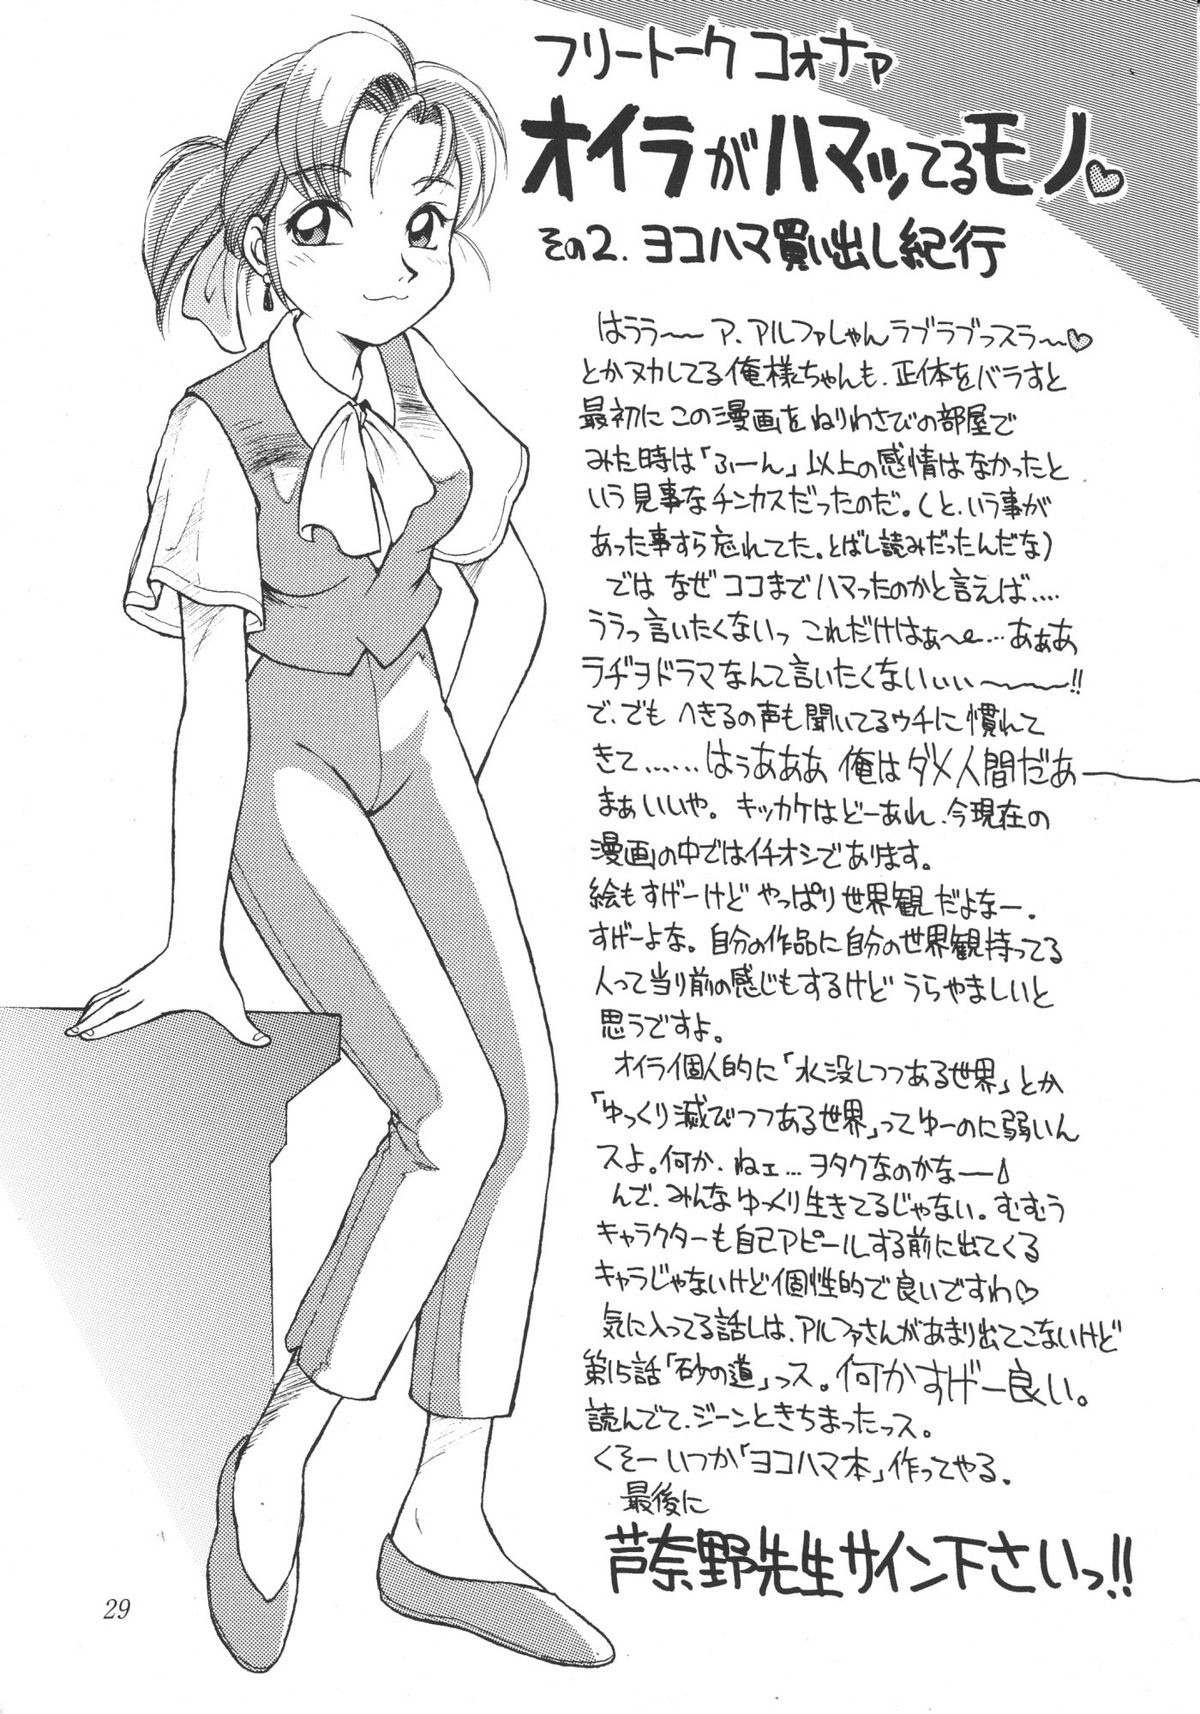 フリートークコォナァ
オイラがハマッてるモノ♡
その2. ヨコハマ買い出し紀行
はうう〜〜ア、アルファしゃんラブラブっスラ〜♡
とかヌカしてる俺様ちゃんも、正体をバラすと
最初にこの漫画をねりわさびの部屋で
みた時は「ふーん」以上の感情はなかったと
いう見事なチンカスだったのだ。(と、いう事が
あった事すら忘れてた。とばし読みだったんだな)
ではなぜココまでハマったのかと言えば....
ううっ言いたくないっ これだけはぁ〜...あぁあ
ラヂヲドラマなんて言いたくないぃぃ〜〜〜!!
で、でもへきるの声も聞いてるウチに慣れて
きて......はうあああ 俺はダメ人間だあー
まぁいいや。キッカケはどーあれ、今現在の
漫画の中ではイチオシであります。
絵もすげーけどやっぱり世界観だよなー.
すげーよな。自分の作品に自分の世界観持ってる
人って当り前の感じもするけどうらやましいと
思うですよ。
オイラ個人的に「水没しつつある世界」とか
「ゆっくり滅びつつある世界」ってゆーのに弱いん
スよ。何か、ねェ...ヲタクなのかなー
んで、みんなゆっくり生きてるじゃない。むむう
キャラクターも自己アピールする前に出てくる
キャラじゃないけど個性的で良いですわ♡
気に入ってる話しは、アルファさんがあまり出てこないけど
第15話「砂の道」っス。何かすげー良い。
読んでて、ジーンときちまったっス。
くそーいつか「ヨコハマ本」作ってやる.
最後に
芦奈野先生サイン下さいっ!!
29